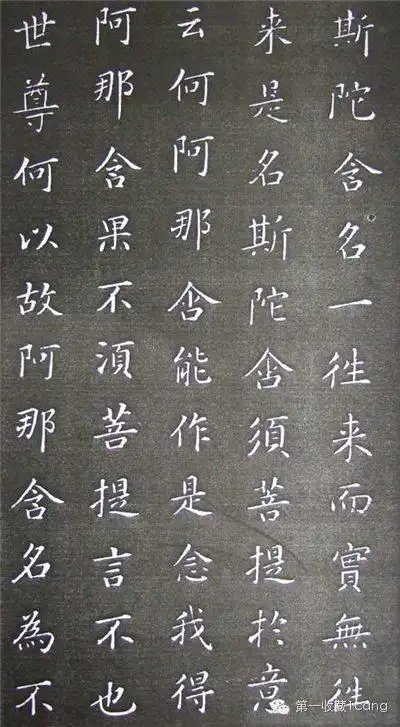 斯陀含名一徃来而實無徃
来是名斯陀含須菩提扵意
云何阿那含能作是念我得
阿那含果不湏菩提言不也
世尊何以故阿那含名為不
第一收藏1cang